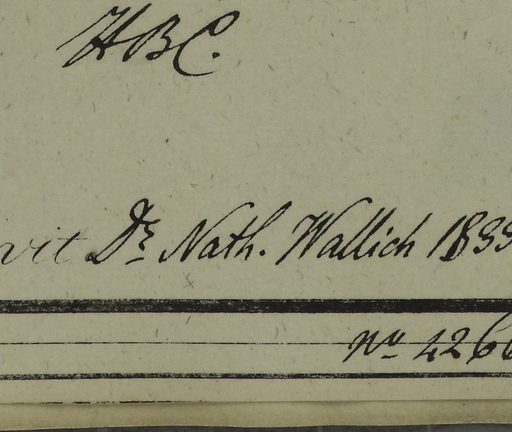 HBC.
vit Dr. Nath. Wallich 1833
No. 4266